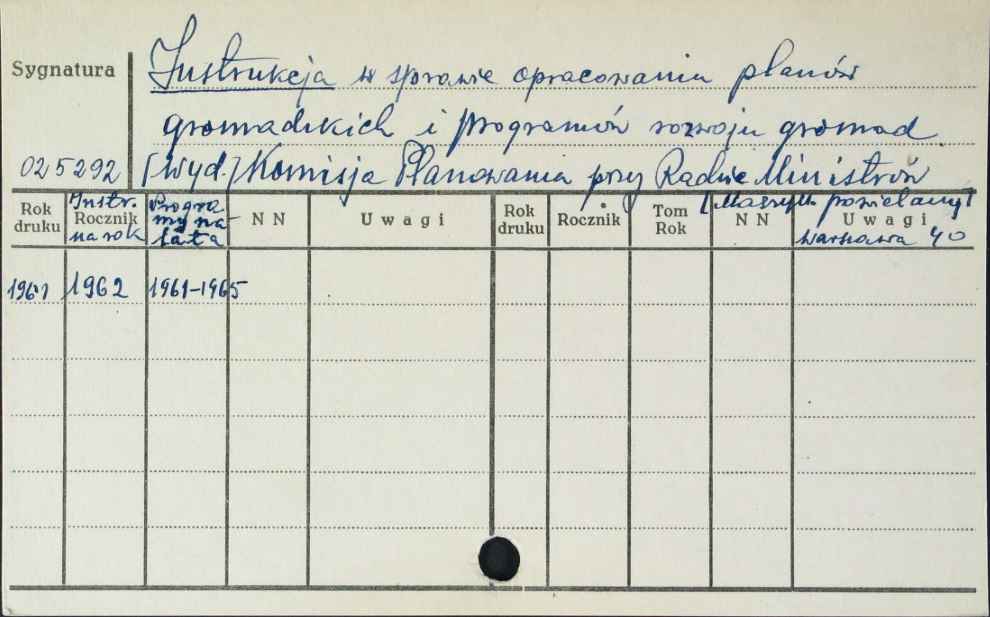 Sygnatura
Instrukcja w sprawie opracowania planów
gromadzkich i programów rozwoju gromad
025292 [Wyd.] Komisja Planowania przy Radzie Ministrów
[Maszyn. powielany]
Warszawa 4°
Rok druku Instr. Rocznik na rok Programy na lata NN Uwagi Rok druku Rocznik Tom Rok NN Uwagi
1961 1962 1961-1965